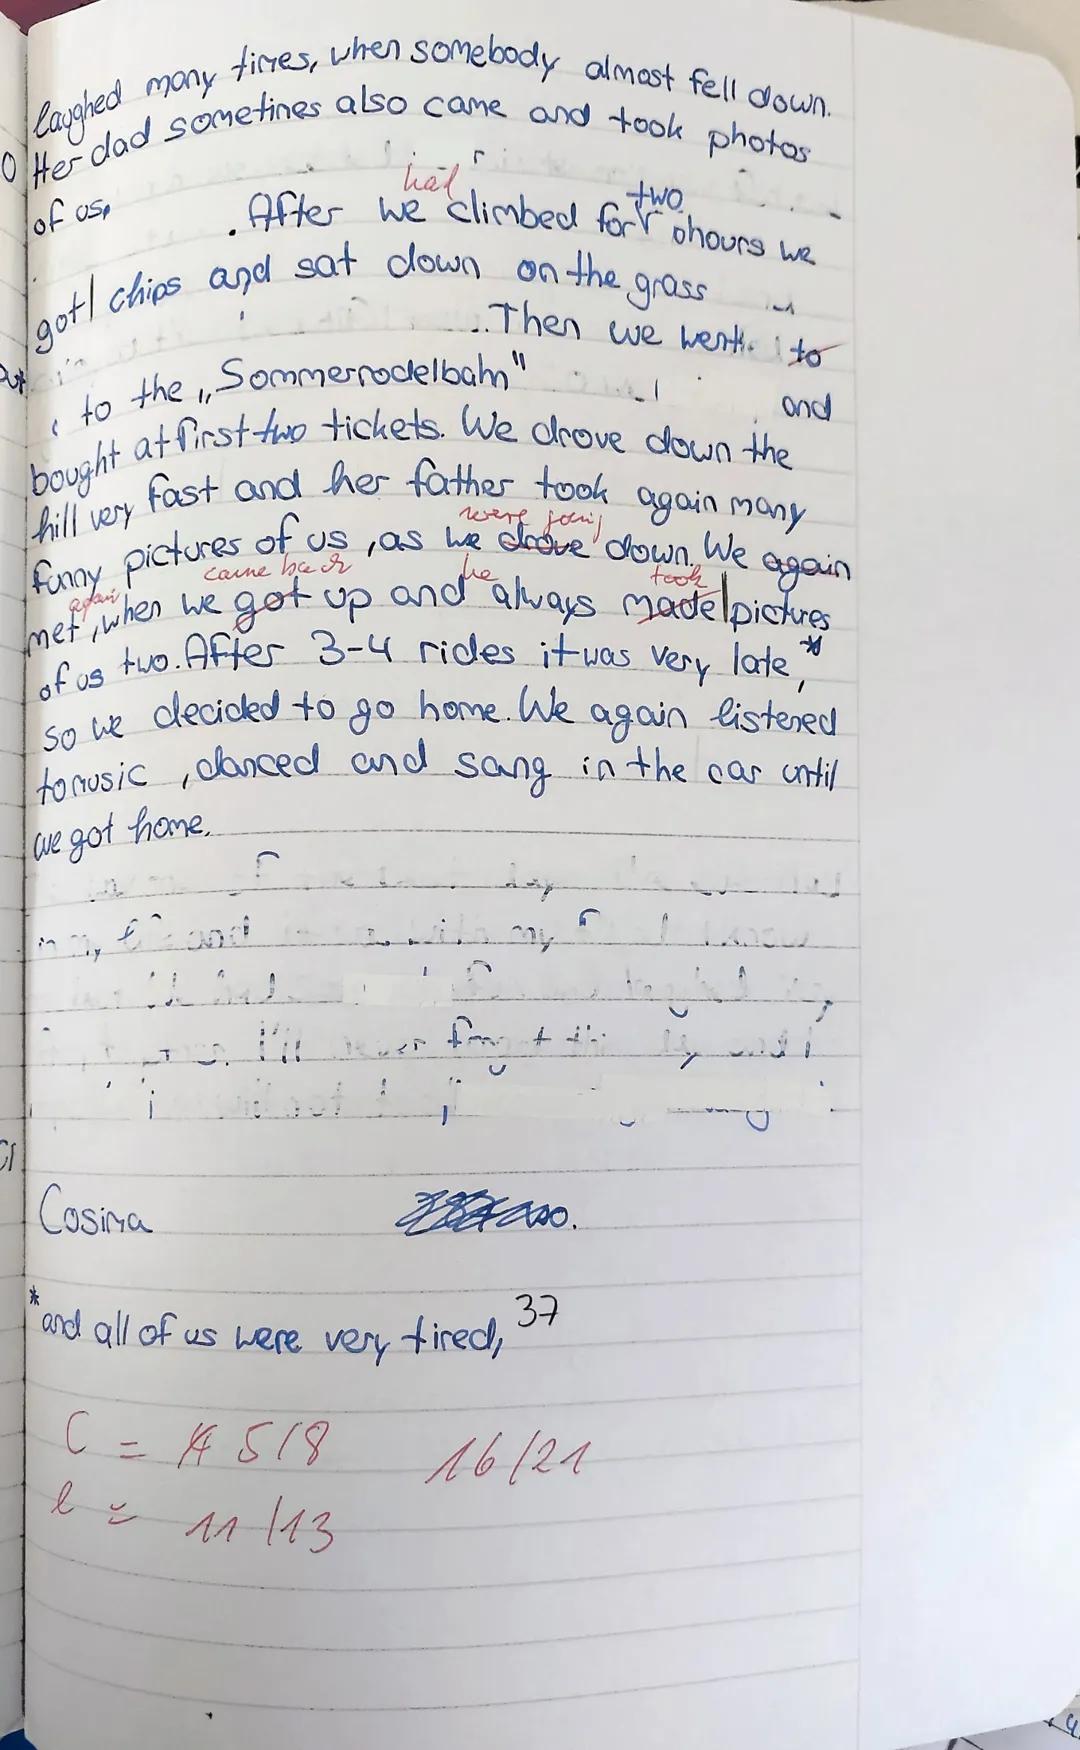 laughed many times, when somebody almost fell down.
Her dad sometimes also came and took photos
of us.
had two
. After we climbed for hours we
got chips and sat down on the grass
Then we went to
to the „Sommerrodelbahn" and
bought at first two tickets. We drove down the
hill very fast and her father took again many
were going
funny pictures of us, as we drove down. We again
again came back he took
met, when we got up and always made pictures
of us two. After 3-4 rides it was very late, *
so we decided to go home. We again listened
to music, danced and sang in the car until
we got home.
Cosima
* and all of us were very tired, 37
C = 5/8 16/21
l = 11/13